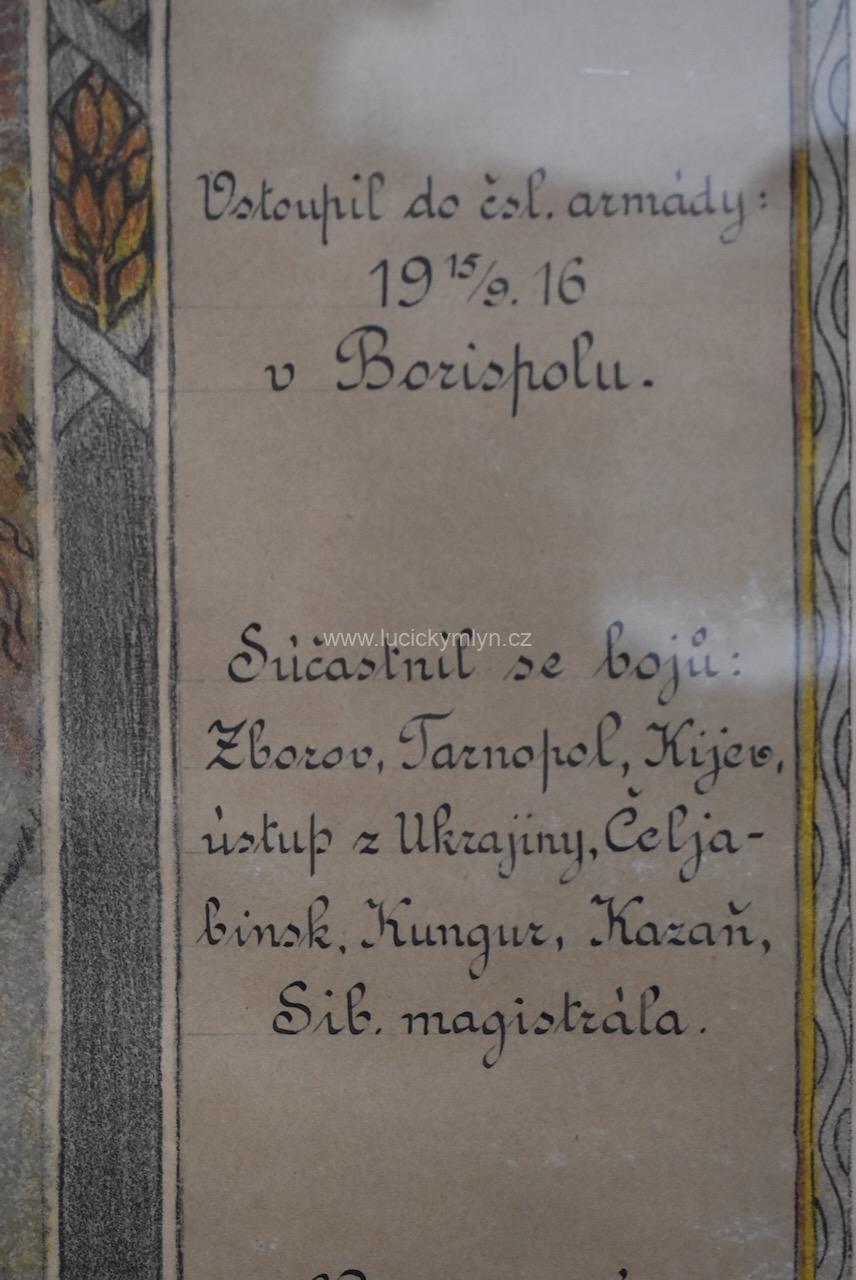 Vstoupil do čsl. armády:
19 15/9. 16
v Borispolu.
www.lucickymlyn.cz
Súčastnil se bojů:
Zborov, Tarnopol, Kijev,
ústup z Ukrajiny, Čelja-
binsk, Kungur, Kazaň,
Sib. magistrála.